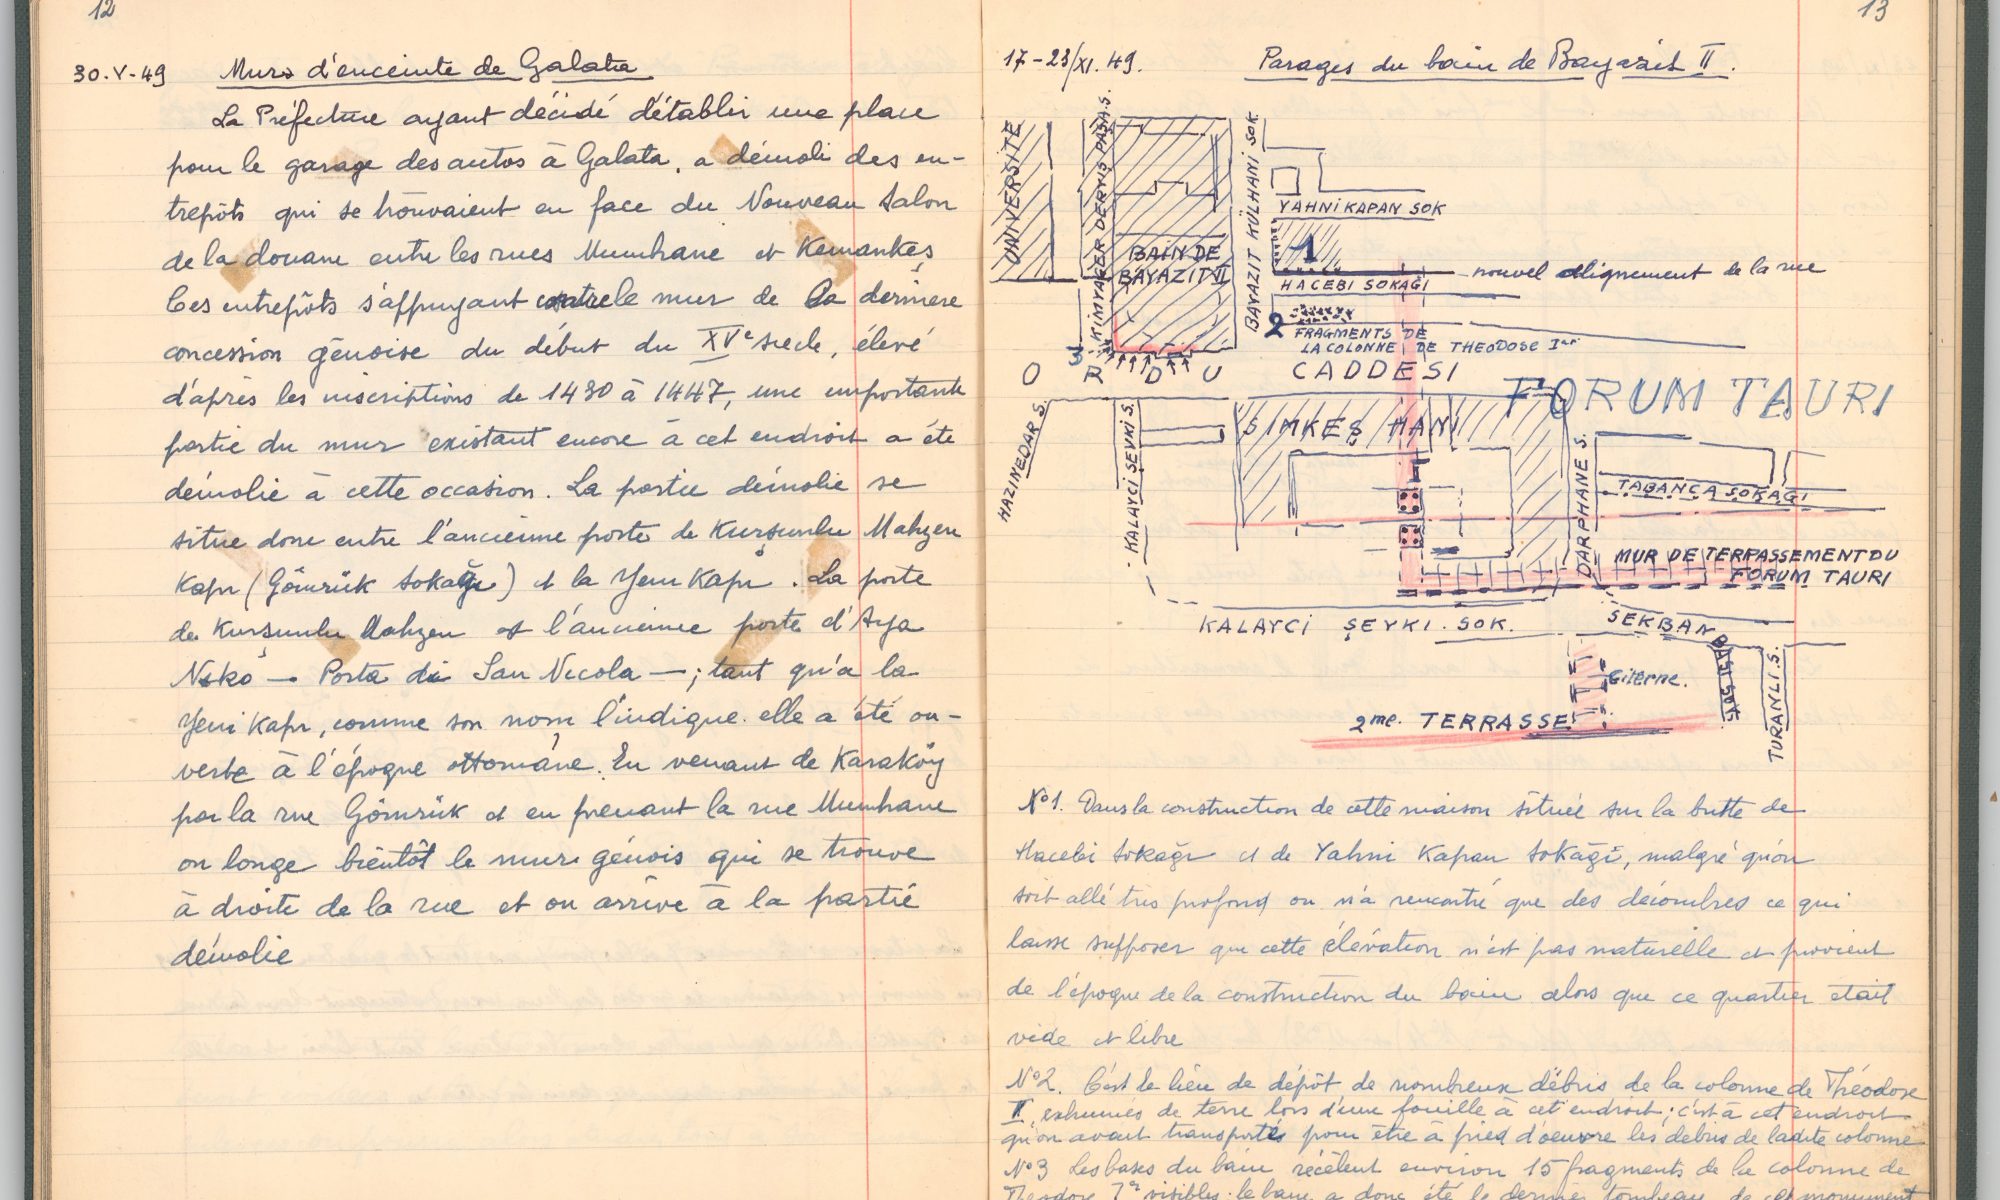 12
30.V-49 Murs d'enceinte de Galata
La Préfecture ayant décidé d'établir une place
pour le garage des autos à Galata, a démoli des en-
trepôts qui se trouvaient en face du Nouveau Salon
de la douane entre les rues Mumhane et Kemankeş
Ces entrepôts s'appuyant contre le mur de la dernière
concession génoise du début du XVe siècle, élevé
d'après les inscriptions de 1430 à 1447, une importante
partie du mur existant encore à cet endroit a été
démolie à cette occasion. La partie démolie se
situe donc entre l'ancienne porte de Kurşunlu Mahzen
Kapı (Gömrük Sokağı) et la Yeni Kapı. La porte
de Kurşunlu Mahzen est l'ancienne porte d'Aya
Niko — Porta di San Nicola —; tant qu'à la
Yeni Kapı, comme son nom l'indique elle a été ou-
verte à l'époque ottomane. En venant de Karaköy
par la rue Gömrük et en prenant la rue Mumhane
on longe bientôt le mur génois qui se trouve
à droite de la rue et on arrive à la partie
démolie
13
17-23/XI.49. Parages du bain de Bayazit II.
UNIVERSITE
KIMYAGER DERVIŞ PAŞA S.
BAIN DE
BAYAZIT II
BAYAZIT KÜLHANI SOK.
YAHNI KAPAN SOK
1
nouvel alignement de la rue
HACEBI SOKAĞI
2
FRAGMENTS DE
LA COLONNE DE THEODOSE Ier
3
ORDU CADDESI
FORUM TAURI
HAZINEDAR S.
KALAYCI ŞEVKI S.
SIMKEŞ HANI
DARPHANE S.
TABANCA SOKAĞI
MUR DE TERRASSEMENT DU
FORUM TAURI
KALAYCI ŞEVKI SOK.
SEKBAN BAŞI SOK.
Citerne.
2me. TERRASSE
TURANLI S.
No1. Dans la construction de cette maison située sur la butte de
Hacebi Sokağı et de Yahni Kapan Sokağı, malgré qu'on
soit allé très profond on n'a rencontré que des décombres ce qui
laisse supposer que cette élévation n'est pas naturelle et provient
de l'époque de la construction du bain alors que ce quartier était
vide et libre
No2. C'est le lieu de dépôt de nombreux débris de la colonne de Théodose
II, exhumés de terre lors d'une fouille à cet endroit; c'est à cet endroit
qu'on avait transportés pour être à pied d'oeuvre les débris de ladite colonne
No3 Les bases du bain recèlent environ 15 fragments de la colonne de
Theodose Ier visibles. le bain a donc été le dernier tombeau de ce monument